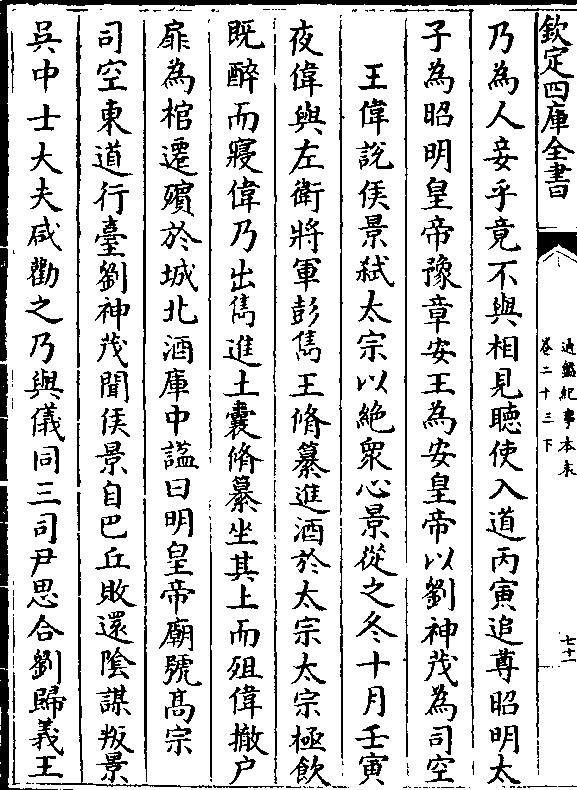 欽定四庫全書
通鑑紀事本末
卷二十三下
七十一
乃為人妾乎竟不與相見聽使入道丙寅追尊昭明太
子為昭明皇帝豫章安王為安皇帝以劉神茂為司空
王偉說侯景弒太宗以絶衆心景從之冬十月壬寅
夜偉與左衛將軍彭雋王脩纂進酒於太宗太宗極飲
既醉而寢偉乃出雋進土囊脩纂坐其上而殂偉撤户
扉為棺遷殯於城北酒庫中諡曰明皇帝廟號髙宗
司空東道行臺劉神茂聞侯景自巴丘敗還陰謀叛景
吳中士大夫咸勸之乃與儀同三司尹思合劉歸義王